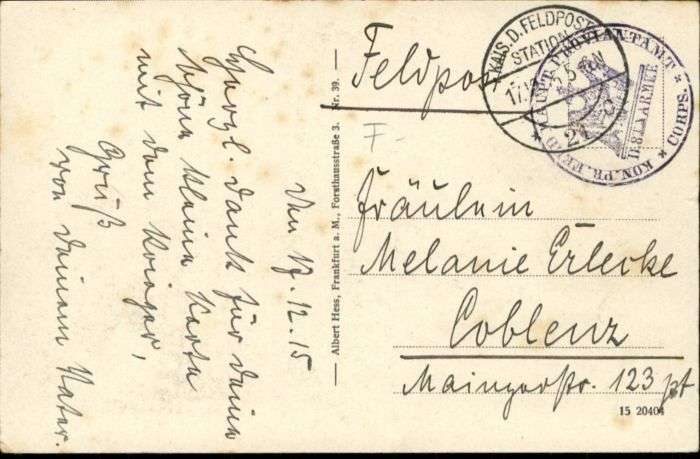 Den 17.12.15
Herzl. Dank für Deine
schöne kleine Karte
mit dem Krieger,
Gruß
von Deinem Vater.
Albert Hess, Frankfurt a. M., Forsthausstraße 3. Nr. 39.
Feldpost
KAIS. D. FELDPOST
STATION
17.12.
KON. PR.
PROVIANTAMT
CORPS.
F-
Fräulein
Melanie Erlecke
Coblenz
Mainzerstr. 123 pt
15 20404